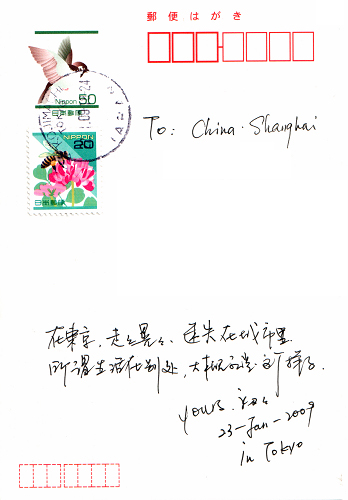 郵便はがき
NIPPON 50
日本郵便
NIPPON 20
日本郵便
To: China · Shanghai
在東京，走走晃晃、迷失在城市里.
所謂生活在别处，大概就是这样了.
yours.
23-Jan-2009
in Tokyo